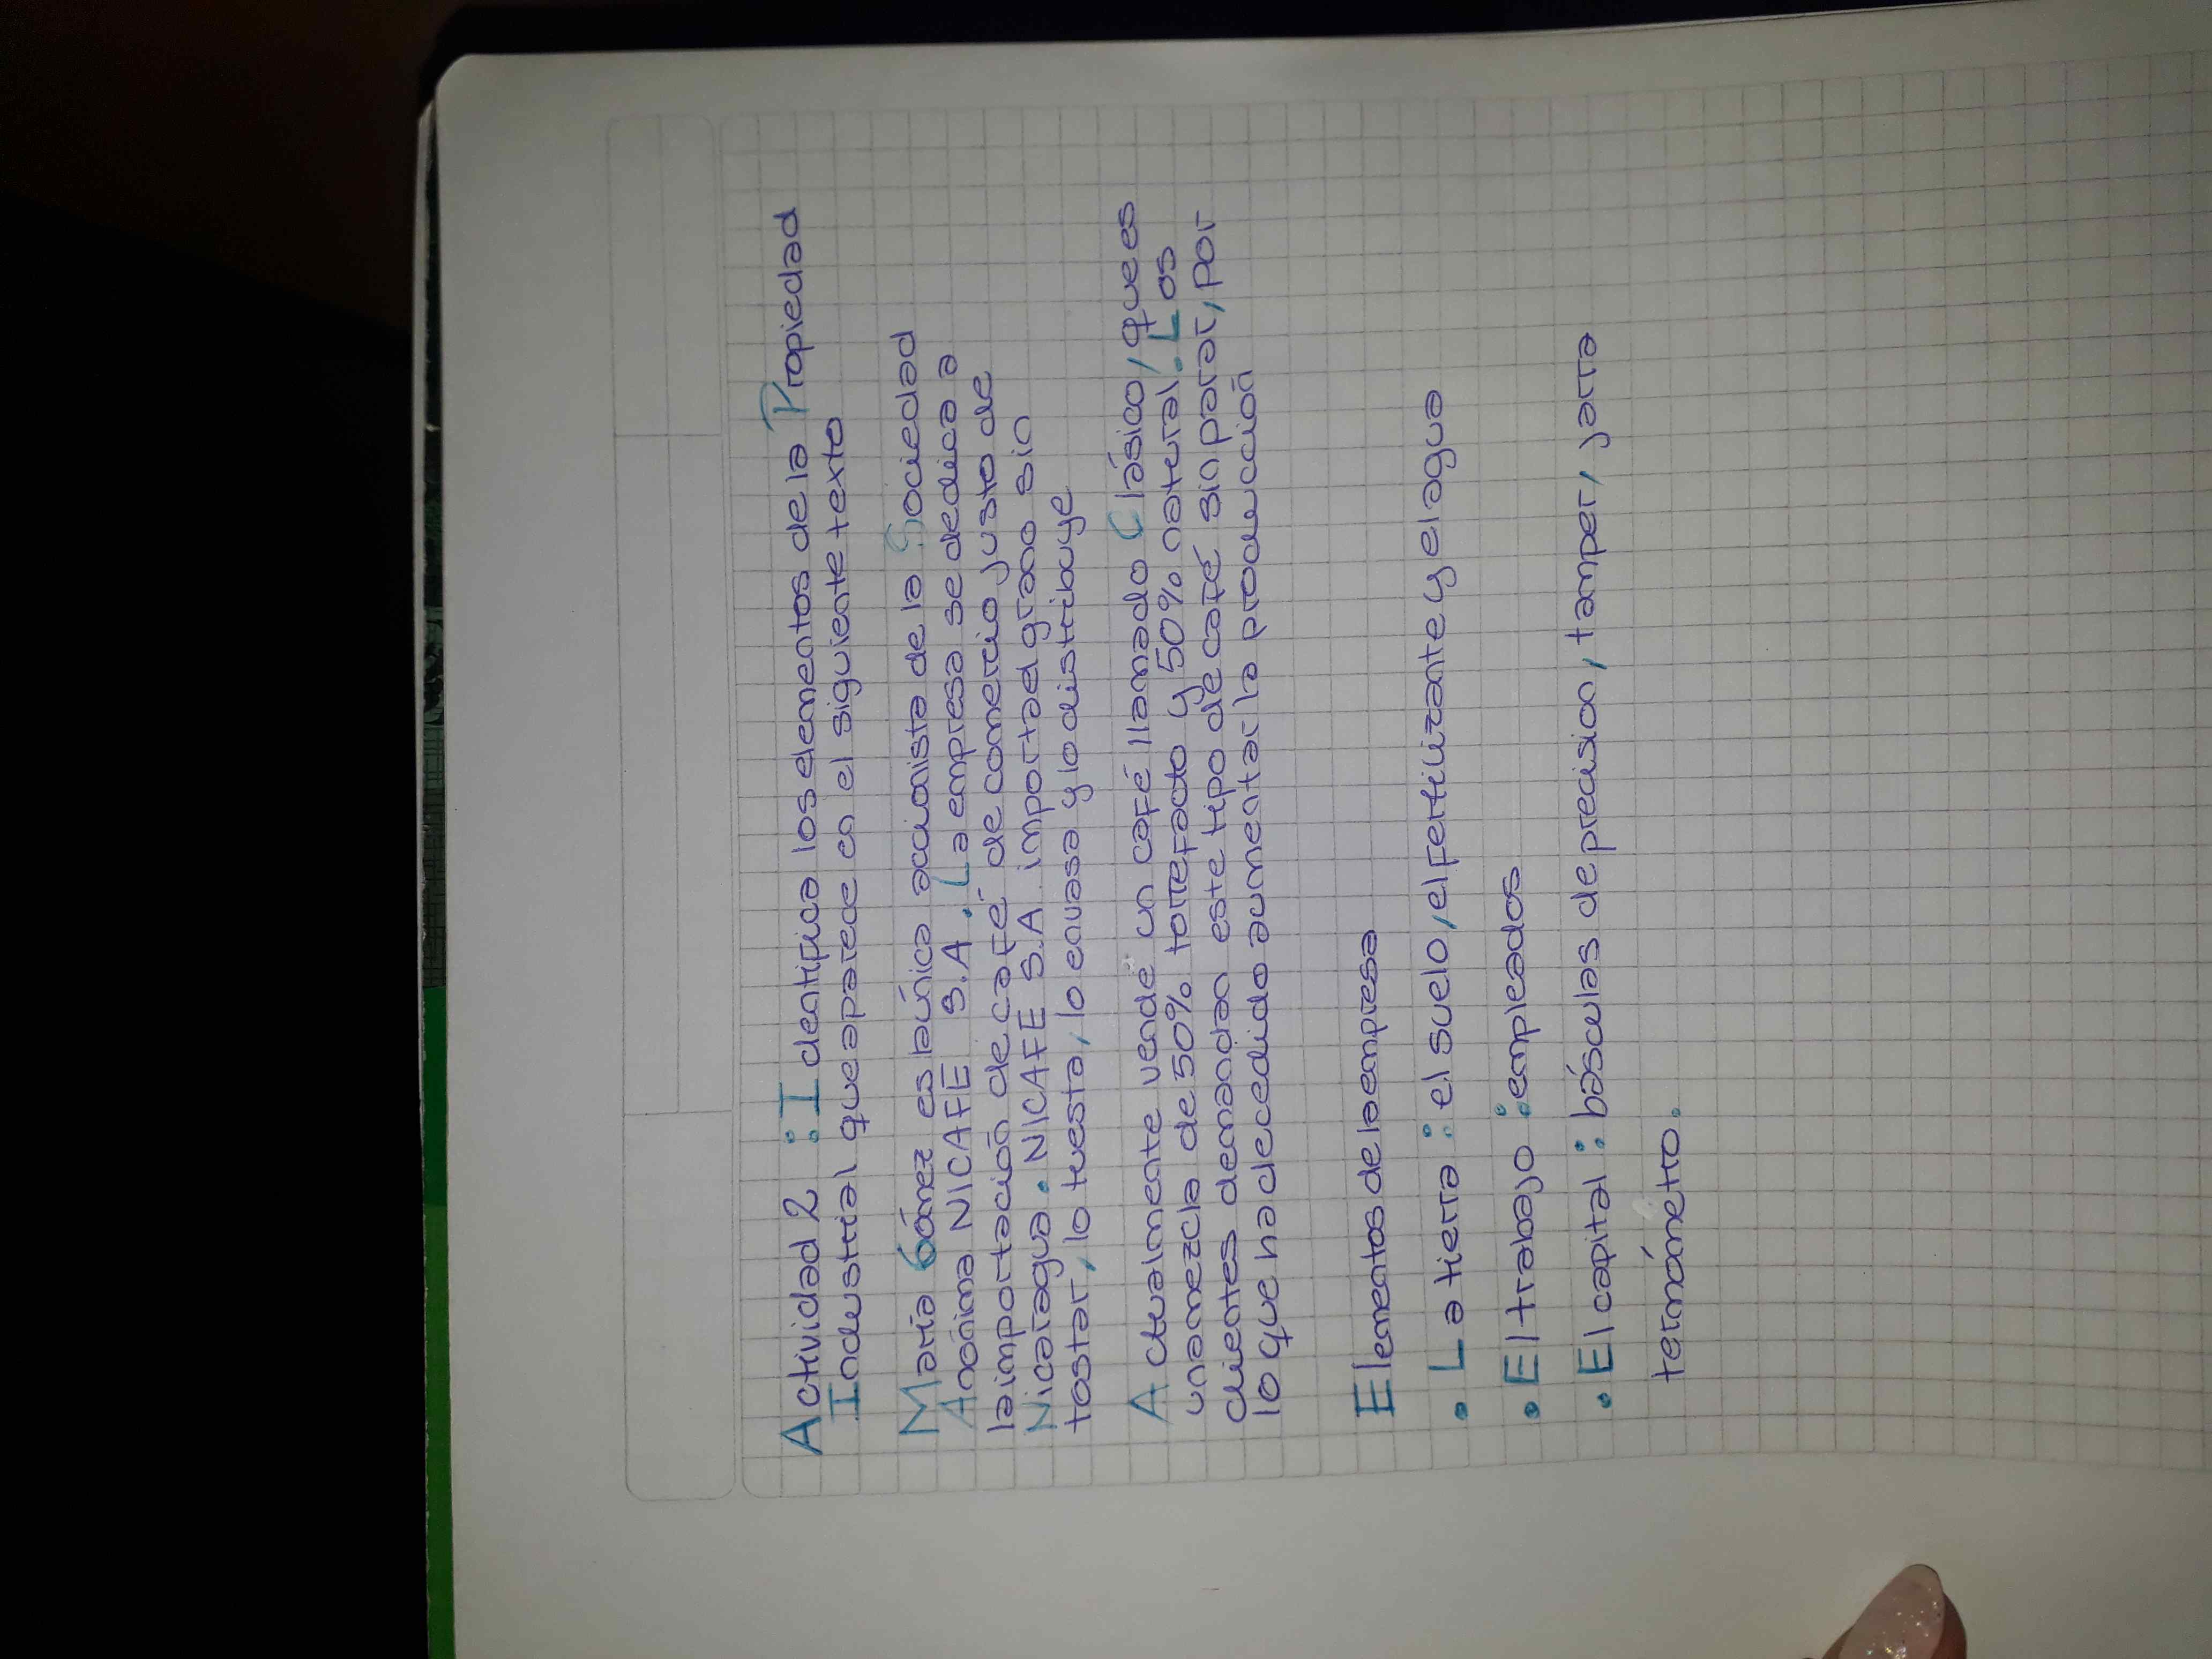 Actividad 2 : Identifica los elementos de la Propiedad
Industrial que aparece en el siguiente texto
María Gómez es la única accionista de la Sociedad
Anónima NICAFE S.A. La empresa se dedica a
la importación de café de comercio justo de
Nicaragua. NICAFE S.A importa el grano sin
tostar, lo tuesta, lo envasa y lo distribuye
Actualmente vende un café llamado Clásico, que es
una mezcla de 50% torrefacto y 50% natural. Los
clientes demandan este tipo de café sin parar, por
lo que ha decedido aumentar la producción
Elementos de la empresa
• La tierra : el suelo, el fertilizante y el agua
• El trabajo : empleados
• El capital : básculas de precision, tamper, jarra
termómetro.